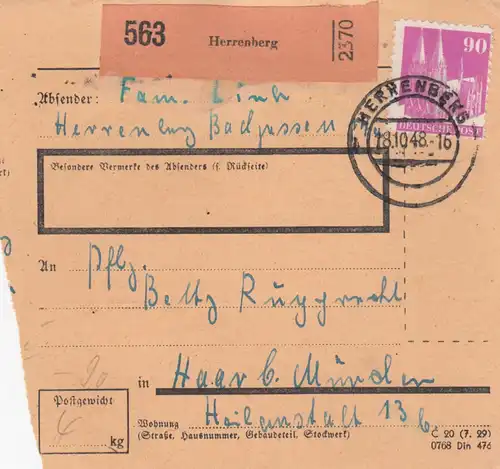 563 Herrenberg 2370
90
DEUTSCHE POST
HERRENBERG
18.10.48.-16
Absender: Fam. Link
Herrenberg Badgassen
Besondere Vermerke des Absenders (s. Rückseite)
An Pflg.
Beltz Rupprecht
-90
in Haar b. München
Postgewicht
4 kg
Wohnung Heilanstalt 13 b
(Straße, Hausnummer, Gebäudeteil, Stockwerk)
C 20 (7. 29)
0768 Din 476